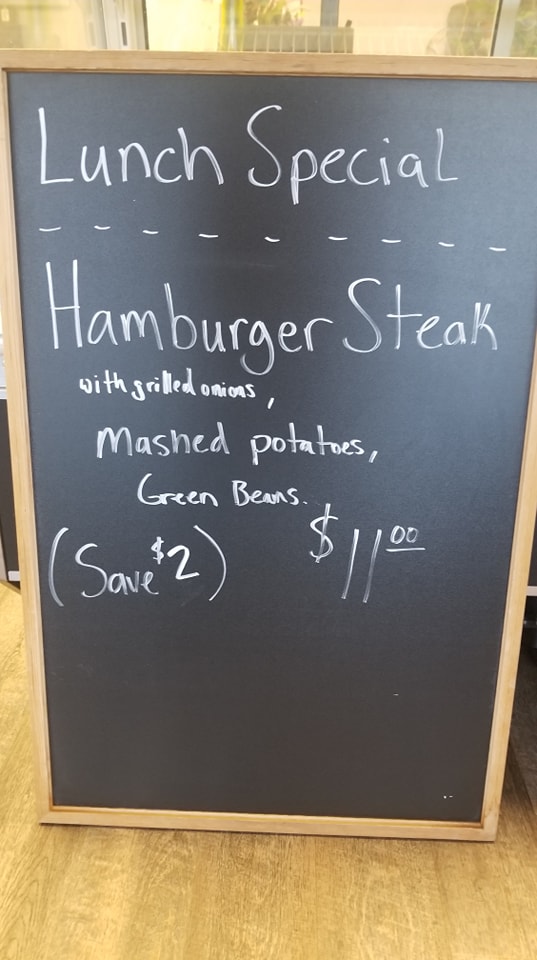 Lunch Special
- - - - - - - - -
Hamburger Steak
with grilled onions,
Mashed potatoes,
Green Beans.
(Save $2) $11.00